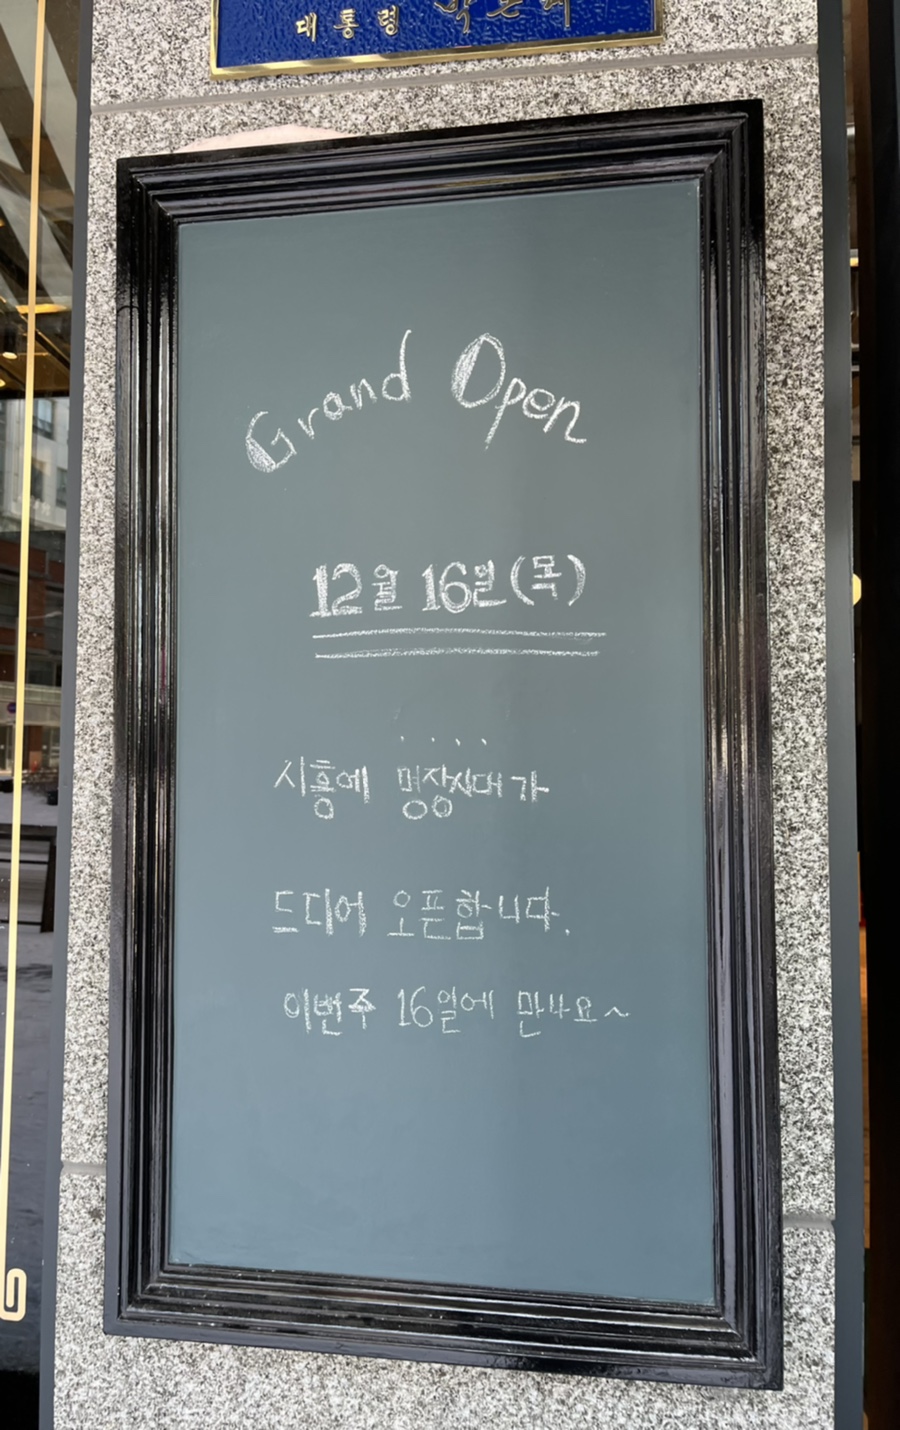 대통령
Grand Open
12월 16일(목)
시흥에 명장시대가
드디어 오픈합니다.
이번주 16일에 만나요~